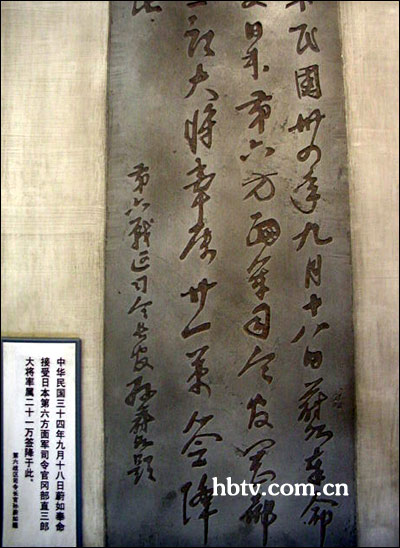 民國卅四年九月十八日蔚如奉命
受日本第六方面軍司令官岡部
郎大將率属廿一萬簽降
此
第六戰区司令长官孫蔚如題
中华民国三十四年九月十八日蔚如奉命
接受日本第六方面军司令官冈部直三郎
大将率属二十一万签降于此。
第六战区司令长官孙蔚如题
hbtv.com.cn